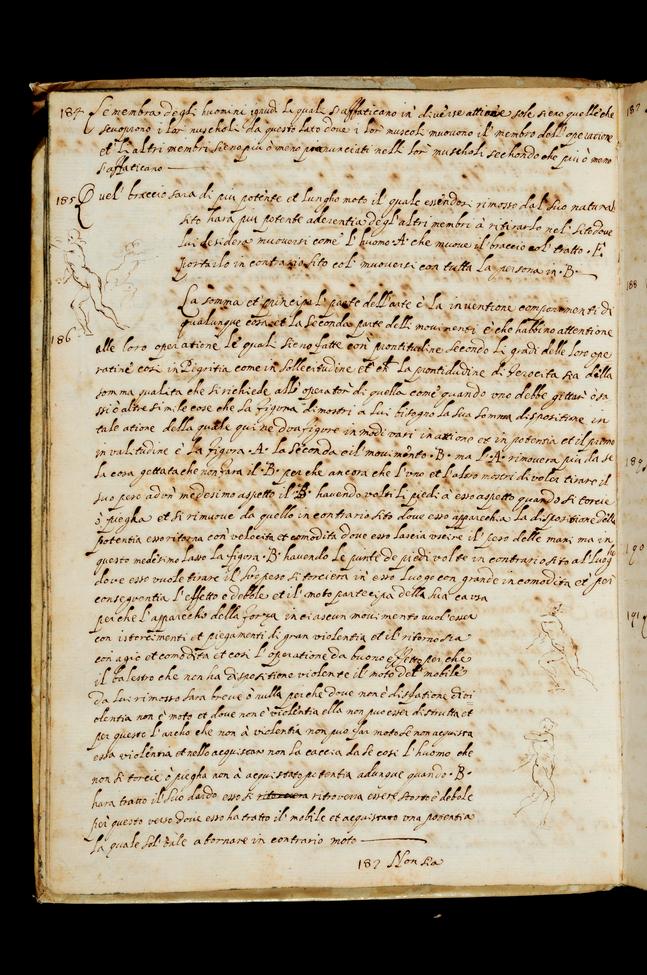 184 Le membra degli huomini ignudi le quale s'affaticano in diverse attione sole sieno quelle che
scuoprono i lor muscholi da questo lato dove i lor muscoli muovono il membro dell'operatione
et li altri membri sieno più ò meno pronunciati nelli lor muscholi sechondo che più ò meno
s'affaticano
185 Quel braccio sara di piu potente et lungho moto il quale essendosi rimosso dal suo natural
sito harà piu potente aderentia degl'altri membri à ritirarlo nel sito dove
lui desidera muoversi come l'huomo A che muove il braccio col tratto E
portarlo in contrario sito col muoversi con tutta la persona in B
La somma et principal parte dell'arte è la inventione componimenti di
qualunque cosa et la seconda parte delli movimenti è che habbino attentione
186
alle loro operatione le quali sieno fatte con prontitudine secondo li gradi delle loro ope
ratini così in pigritia come in sollecitudine et ch la prontidudine di ferocita sia della
somma qualita che si richiede all'operator di quella come quando uno debbe gittar
ssi ò altre simile cose che la figura dimostri à lui bisogno la sua somma dispositione in
tale atione della quale qui ne dua figure in modi vari in atione et in potentia et il primo
in valitudine è la figura A la seconda è il movimento B ma l'A rimovera piu da se
la cosa gettata che non fara il B perche ancora che l'uno et l'altro mostri di voler tirare il
suo peso ad un medesimo aspetto il B havendo volti li piedi à esso aspetto quando si torcie
ò pieghа et si rimuove da quello in contrario sito dove esso apparecchia la dispositione della
potentia esso ritorna con velocita et comodita dove esso lascia uscire il peso delle mani ma in
questo medesimo casso la figora B havendo le punte de piedi volte in contrario sito al luog
ho
dove esse vuole tirare il suo peso si torciera in esso luogo con grande incomodita et per
conseguentia l'effetto è debole et il moto partecipa della sua causa
perche l'apparecho della forza in ciascun movimento vuol'essere
con istorcimenti et piegamenti di gran violentia et il ritorno sia
con agio et comodita et così l'operatione da buono effetto perche
il balestro che non ha dispositione violente il moto del mobile
da lui rimosso sara breve ò nulla perche dove non è disfatione di vi
olentia non è moto et dove non è violentia ella non puo esser distrutta et
per questo l'archo che non à violentia non puo far moto se non acquista
essa violentia et nello acquistar non la caccia da se così l'huomo che
non si torcie ò piegha non à acquistato potentia adunque quando B
hara tratto il suo dardo esso si ritrovera essere storto è debole
per questo verso dove esso ha tratto il mobile et acquistato una potentia
la quale sol' vale a tornare in contrario moto
187 Non sia
187
188
189
190
191